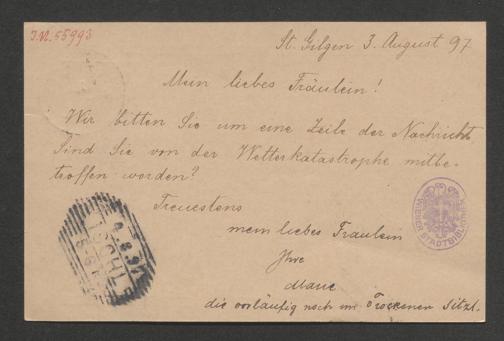 I.N. 55993
St. Gilgen 3. August 97
Mein liebes Fräulein!
Wir bitten Sie um eine Zeile der Nachricht
Sind Sie von der Wetterkatastrophe mitbe-
troffen worden?
Treuestens
mein liebes Fraulein
Ihre
Marie
die vorläufig noch im Trockenen sitzt.
ISCHL
WIENER STADTBIBLIOTHEK